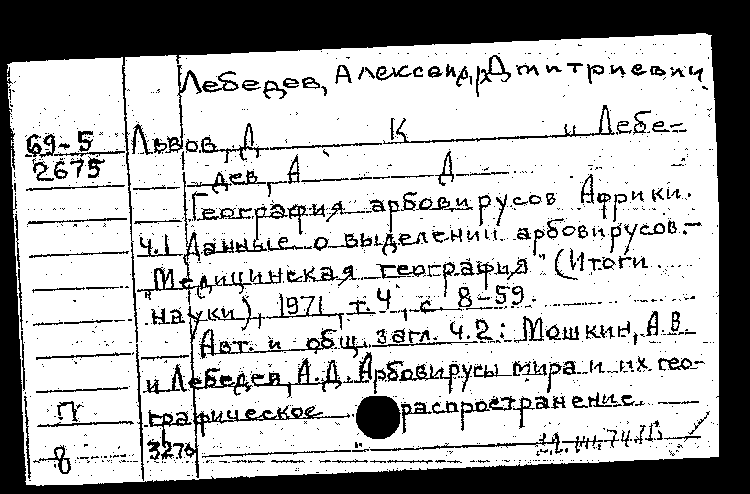 Лебедев, Александр Дмитриевич.
69-5 Львов, Д К и Лебе-
2675 дев, А Д
География арбовирусов Африки.
Ч.1 Данные о выделении арбовирусов.-
"Медицинская география" (Итоги
науки), 1971, т.4, с. 8-59.
(Авт. и общ. загл. Ч.2: Мошкин, А.В.
и Лебедев, А.Д. Арбовирусы мира и их гео-
П графическое распространение.
8 3276